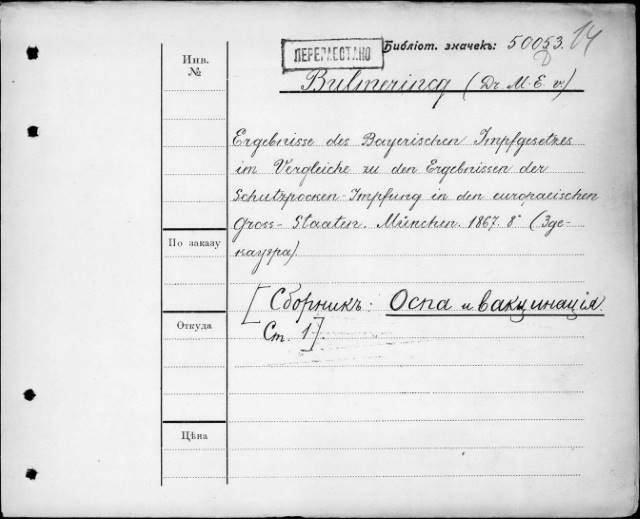 ПЕРЕРАБОТАНО
Библіот. значекъ: 50053. 14
8
Инв. №
Bulmerincq (Dr. M. E. v.)
Ergebnisse des Bayerischen Impfgesetzes
im Vergleiche zu den Ergebnissen der
Schutzpocken-Impfung in den europaeischen
Gross-Staaten. München. 1867. 8° (3 де-
каузра).
По заказу
[Сборникъ: Оспа и вакцинація.
Откуда
Ст. 1].
Цѣна